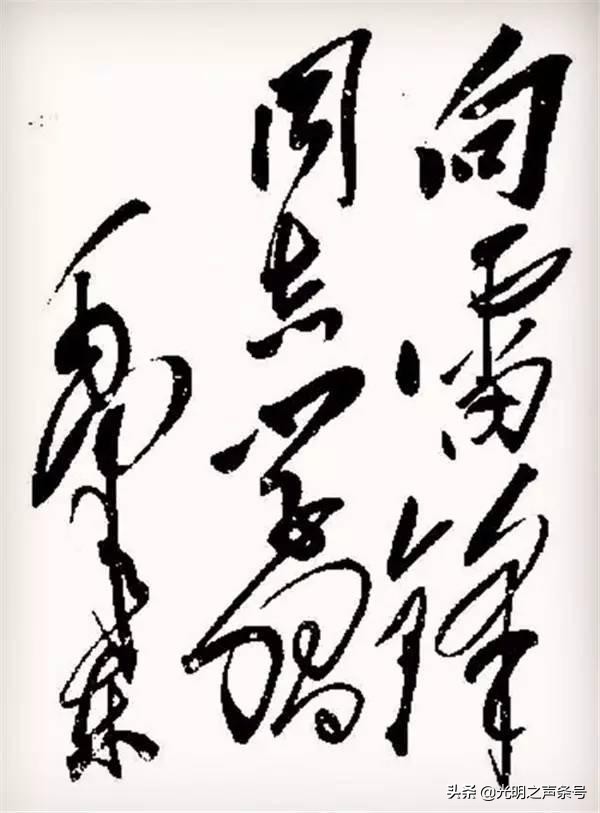 向雷锋
同志学习
毛泽东
头条 @光明之声条号